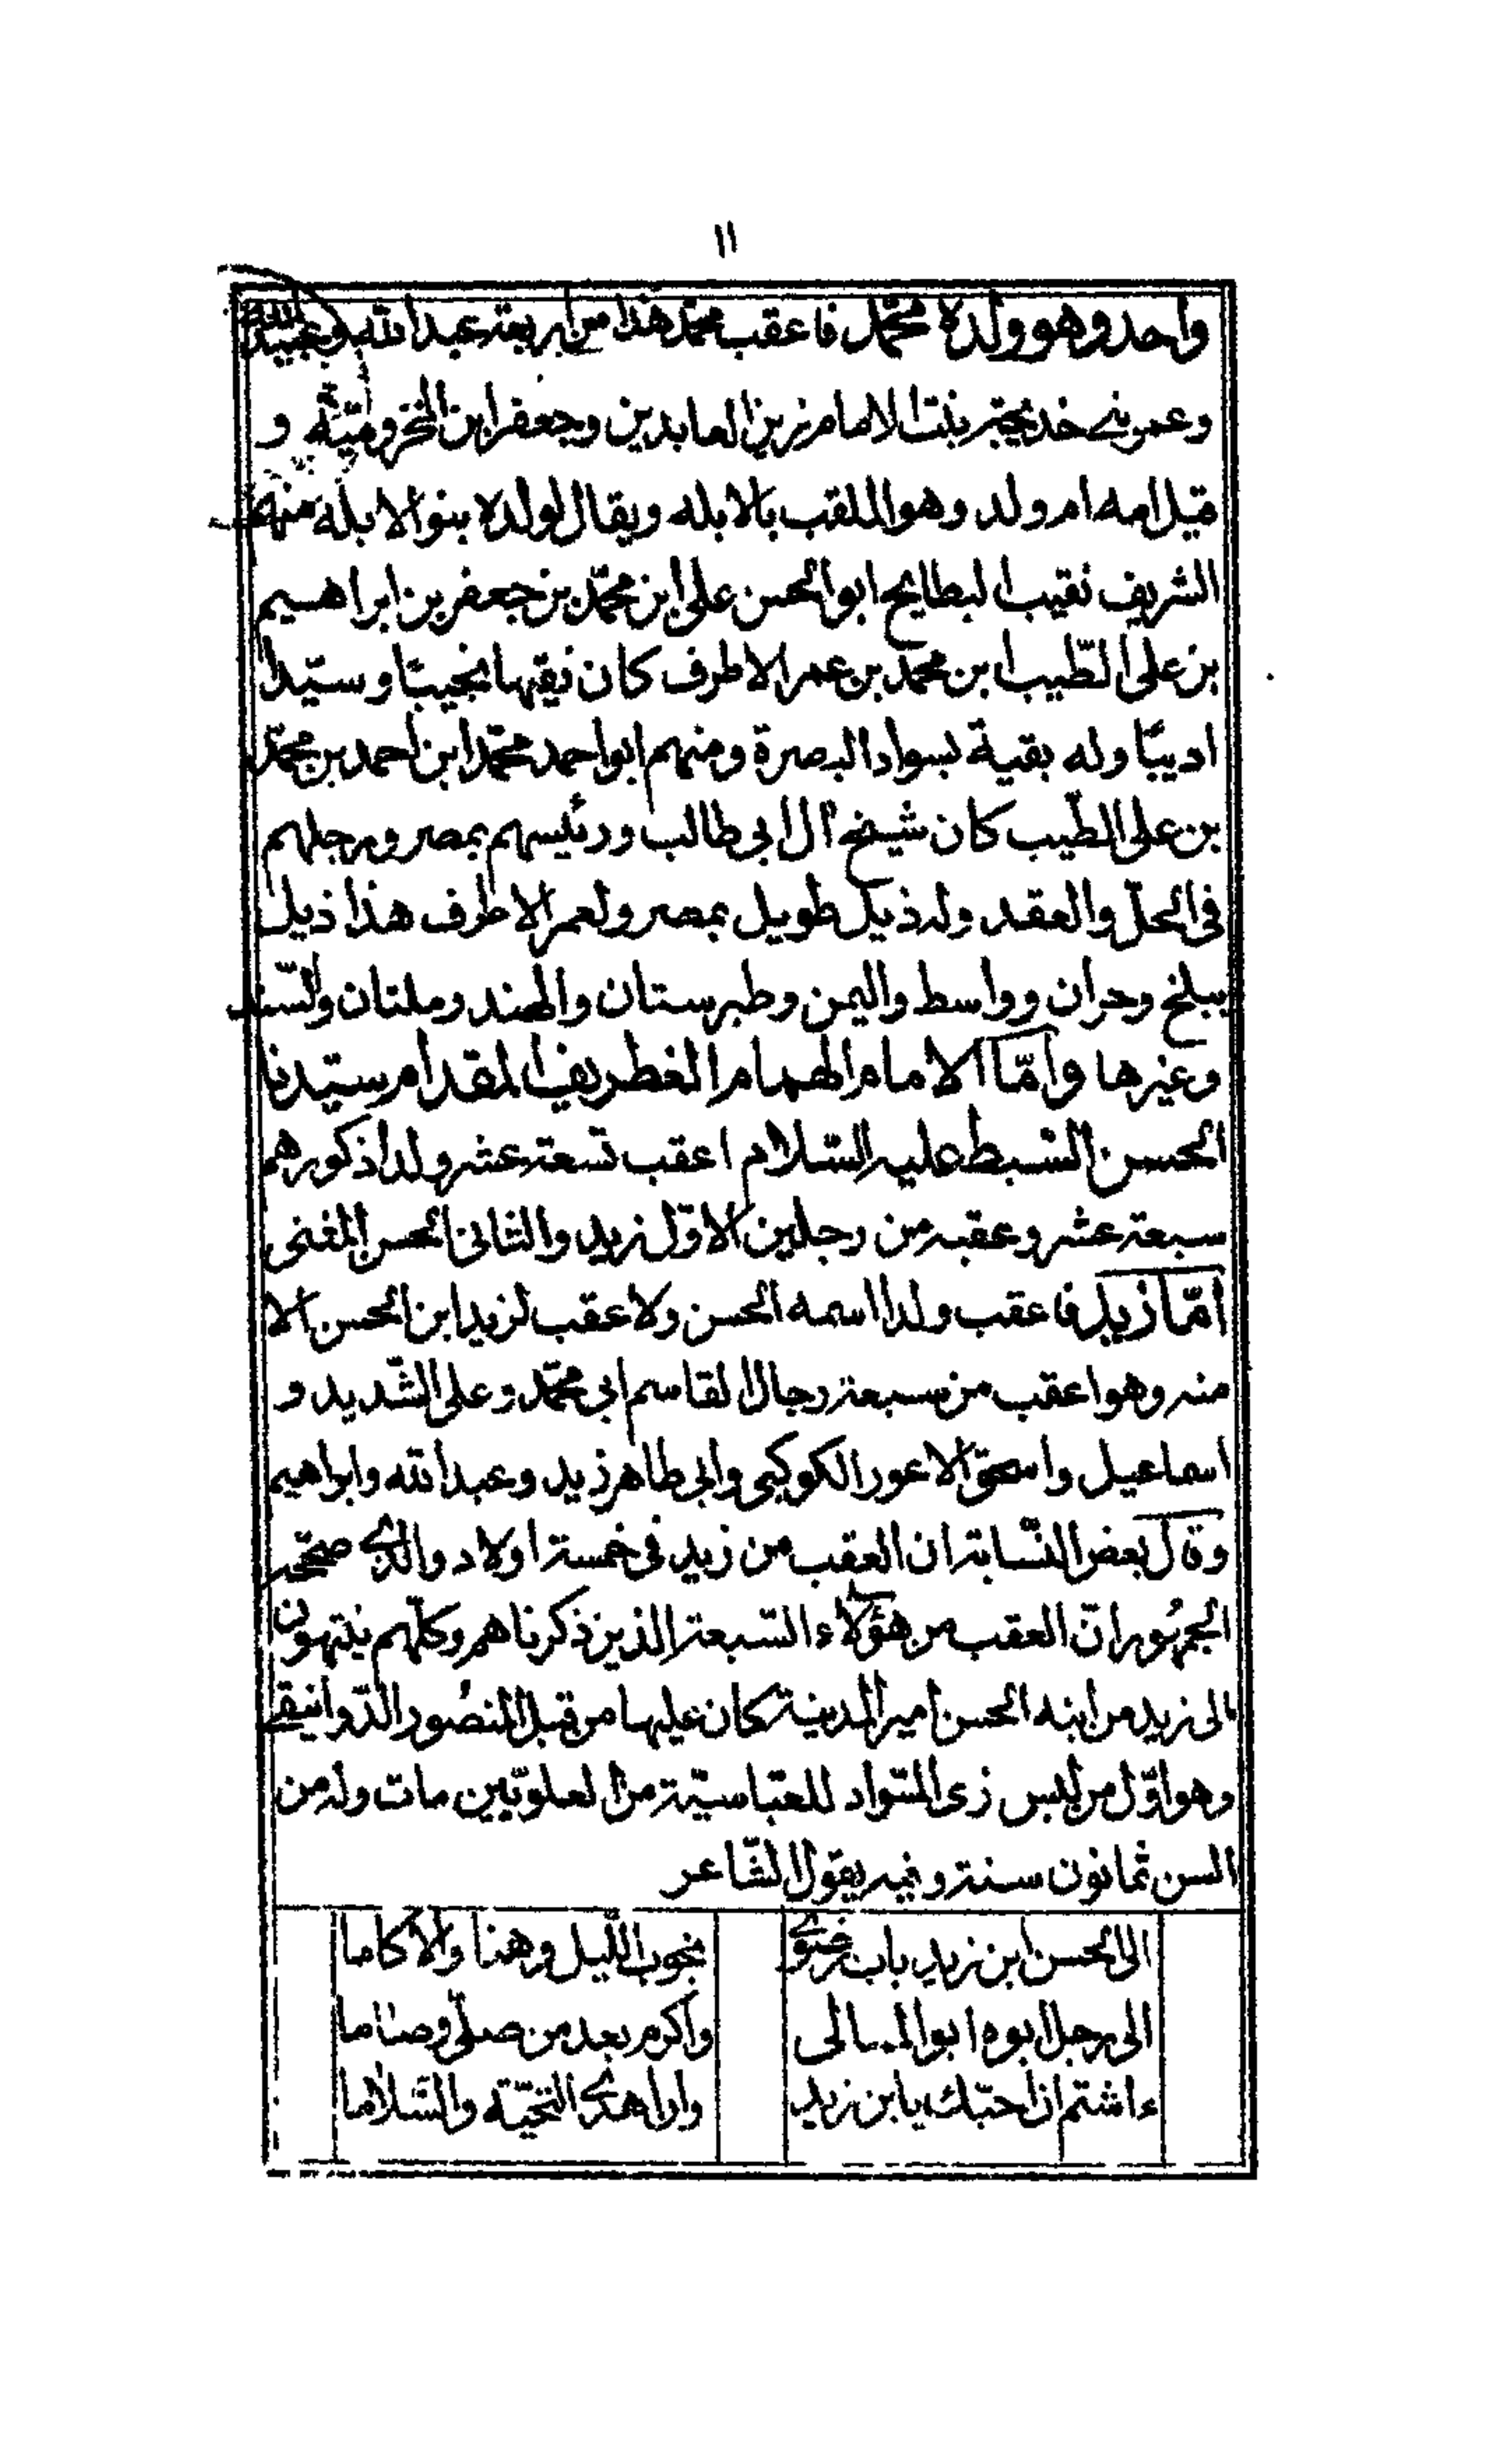 ١١
واحد وهو ولده محمد فاعقب محمد هذا من اربعة عبد الله وعبيد الله
وعمر بني خديجة بنت الامام زين العابدين وجعفر ابن المخزومية و
قيل امه ام ولد وهو الملقب بالابله ويقال لولده بنو الابله منهم
الشريف نقيب البطايح ابو الحسن على ابن محمّد بن جعفر بن ابراهيم
بن على الطّيب ابن محمد بن عمر الاطرف كان نقيبها نجيبًا وسيّدا
اديبًا وله بقية بسواد البصرة ومنهم ابو احمد محمّد ابن احمد بن محمّد
بن على الطّيب كان شيخ ال ابى طالب ورئيسهم بمصر ورجلهم
فى الحلّ والعقد وله ذيل طويل بمصر ولعمر الاطرف هذا ذيل
ببلخ وحران وواسط واليمن وطبرستان والهند وملتان والسّند
وغيرها وامّا الامام الهمام الغطريف المقدام سيّدنا
الحسن السّبط عليه السّلام اعقب تسعة عشر ولدا ذكورهم
سبعة عشر وعقبه من رجلين الاوّل زيد والثانى الحسن المثنى
امّا زيد فاعقب ولدا اسمه الحسن ولا عقب لزيد ابن الحسن الا
منه وهو اعقب من سبعة رجال القاسم ابى محمّد وعلى الشّديد و
اسماعيل واسحق الاعور الكوكبى وابى طاهر زيد وعبد الله وابراهيم
وقال بعض النّسابة ان العقب من زيد فى خمسة اولاد والذي صححه
الجمهُور انّ العقب من هؤلاء السّبعة الذين ذكرناهم وكلّهم ينتهون
الى زيد من ابنه الحسن امير المدينة كان عليها من قبل المنصُور الدّوانيقي
وهو اوّل من لبس زى السّواد للعبّاسيّة من العلويّين مات وله من
السن ثمانون سنة وفيه يقول الشّاعر
الى الحسن ابن زيد باب نجوب اللّيل وهنا والاكاما
الى رجل ابوه ابو المعالى واكرم بعد من صلّى وصاما
ءاشتم ان احبّك يا بن زيد وان اهدي التحيّة والسّلاما